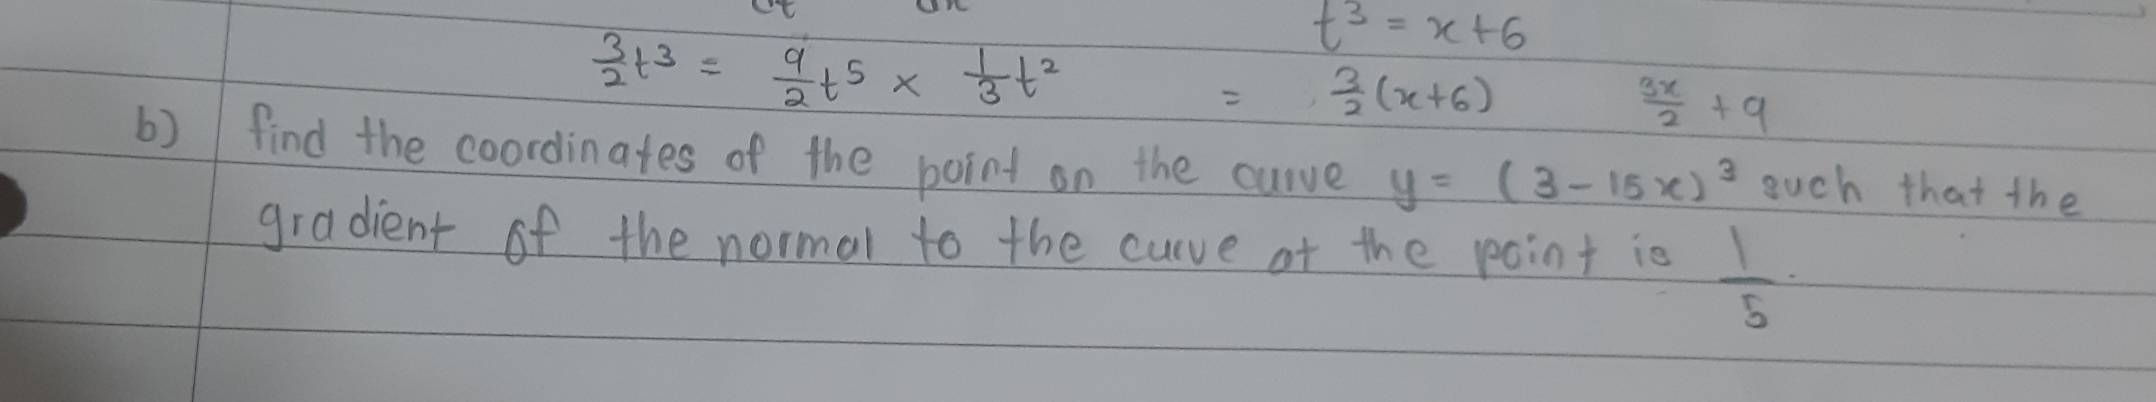 t³ = x+6
3/2 t³ = 9/2 t⁵ × 1/3 t² = 3/2 (x+6) 3x/2 + 9
b) find the coordinates of the point on the curve y = (3 - 15x)³ such that the
gradient of the normal to the curve at the point is 1/5.